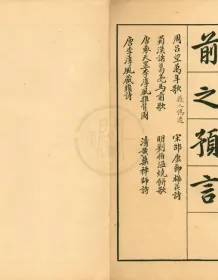 前之預言
周呂望萬年歌 後人偽造
蜀漢諸葛亮馬前歌
唐袁天罡李淳風推背圖
唐李淳風藏頭詩
宋邵康節梅花詩
明劉伯溫燒餅歌
清黃蘗禪師詩